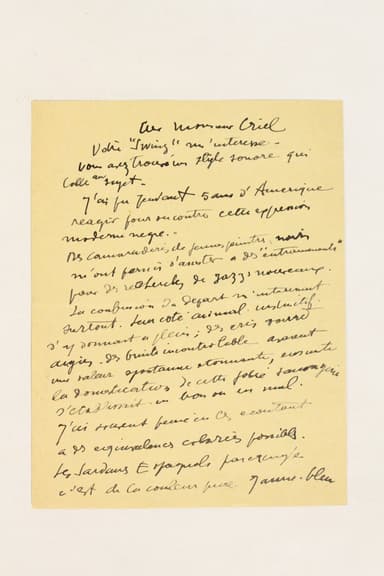 Cher Monsieur Criel
Votre "Swing" m'interesse -
vous avez trouvé un style sonore qui
colle au sujet -
J'ai pu pendant 5 ans d'Amerique
reagir pour ou contre cette expression
moderne negre..
Des camaraderies de jeunes peintres noirs
m'ont permis d'assister a des "entrainements"
pour des recherches de jazz nouveaux.
La confusion du depart m'interessait
surtout. Leur coté animal instinctif
s'y donnait a plein ; des cris
aigües - des bruits incontrolable avaient
une valeur spontanée etonnante, ensuite
la domestication de cette folie sauvagerie
s'etablissait en bon ou en mal.
J'ai souvent pensé en les ecoutant
a des equivalences colorées possible.
Les Sardanes Espagnols par exemple
c'est de la couleur pure jaune-bleu